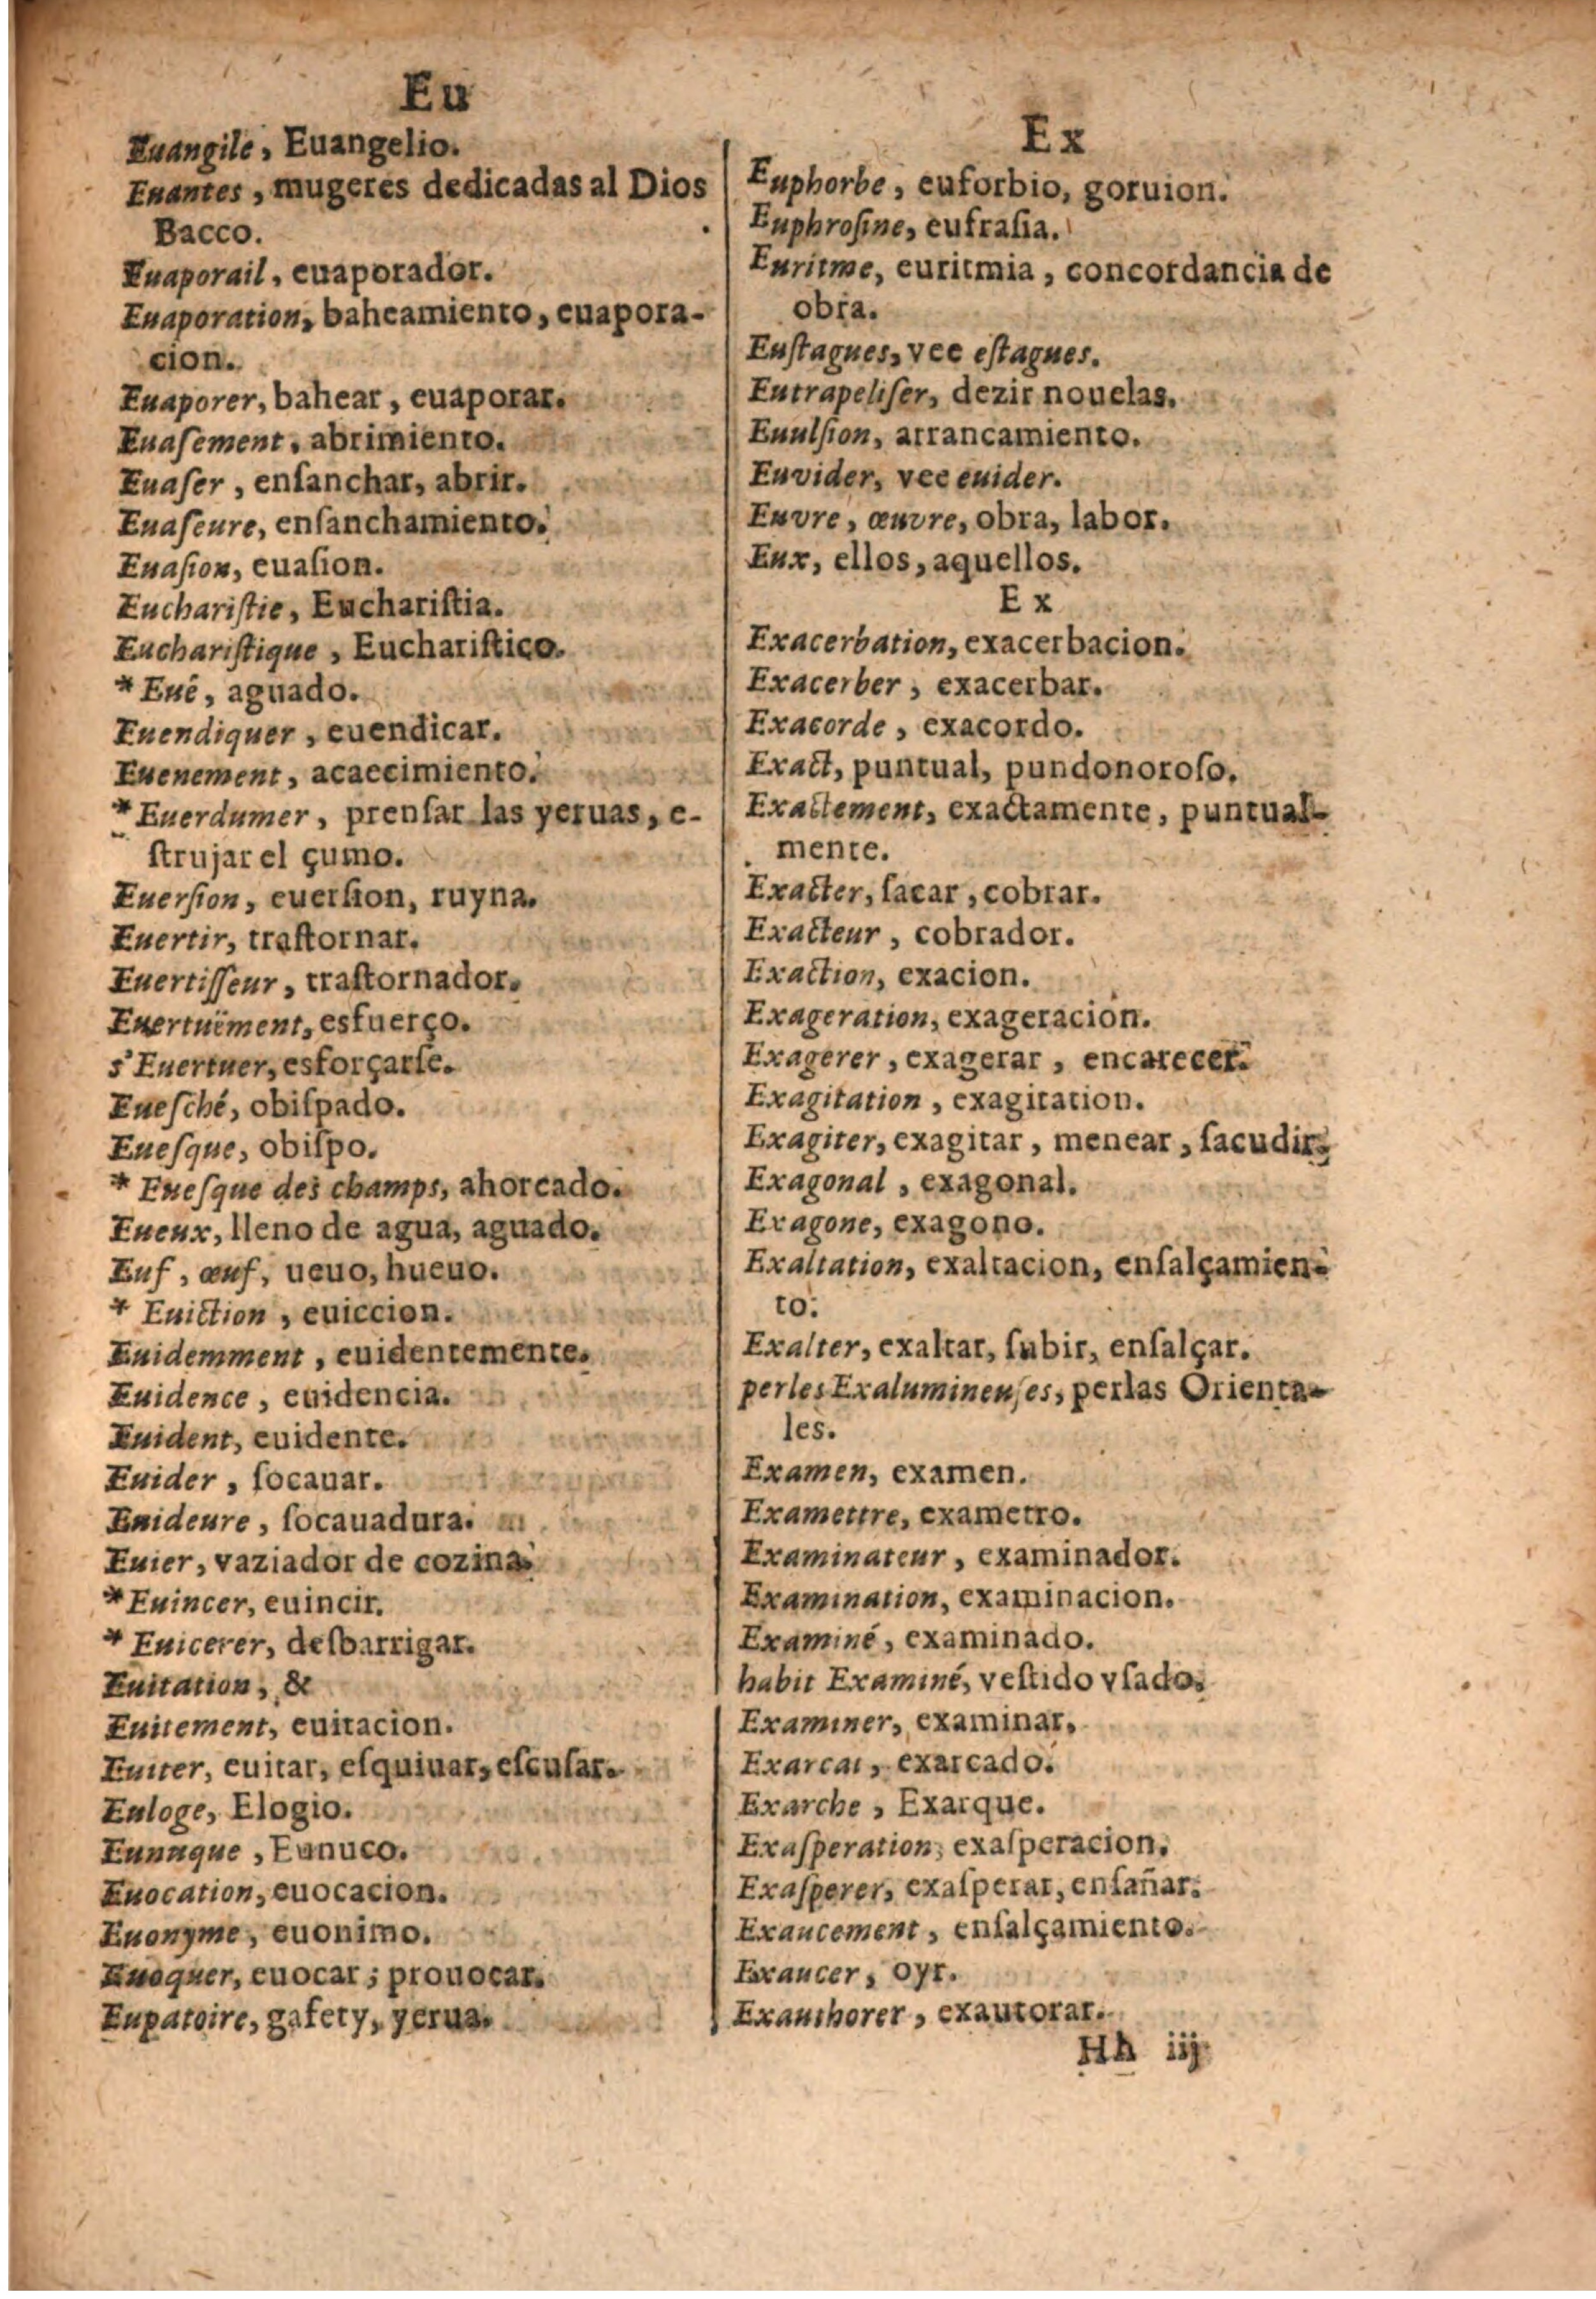 Eu
Euangile, Euangelio.
Euantes, mugeres dedicadas al Dios
Bacco.
Euaporail, euaporador.
Euaporation, baheamiento, euapora-
cion.
Euaporer, bahear, euaporar.
Euaſement, abrimiento.
Euaſer, enſanchar, abrir.
Euaſeure, enſanchamiento.
Euaſion, euaſion.
Euchariſtie, Euchariſtia.
Euchariſtique, Euchariſtico.
* Eué, aguado.
Euendiquer, euendicar.
Euenement, acaecimiento.
* Euerdumer, prenſar las yeruas, e-
ſtrujar el çumo.
Euerſion, euerſion, ruyna.
Euertir, traſtornar.
Euertiſſeur, traſtornador.
Euertuëment, esfuerço.
s'Euertuer, esforçarſe.
Eueſché, obiſpado.
Eueſque, obiſpo.
* Eueſque des champs, ahorcado.
Eueux, lleno de agua, aguado.
Euf, œuf, ueuo, hueuo.
* Euiction, euiccion.
Euidemment, euidentemente.
Euidence, euidencia.
Euident, euidente.
Euider, ſocauar.
Euideure, ſocauadura.
Euier, vaziador de cozina.
* Euincer, euincir.
* Euicerer, deſbarrigar.
Euitation, &
Euitement, euitacion.
Euiter, euitar, eſquiuar, eſcuſar.
Euloge, Elogio.
Eunuque, Eunuco.
Euocation, euocacion.
Euonyme, euonimo.
Euoquer, euocar; prouocar.
Eupatoire, gafety, yerua.
Ex
Euphorbe, euforbio, goruion.
Euphroſine, eufraſia.
Euritme, euritmia, concordancia de
obra.
Euſtagues, vee eſtagues.
Eutrapeliſer, dezir nouelas.
Euulſion, arrancamiento.
Euvider, vee euider.
Euvre, œuvre, obra, labor.
Eux, ellos, aquellos.
Ex
Exacerbation, exacerbacion.
Exacerber, exacerbar.
Exacorde, exacordo.
Exact, puntual, pundonoroſo.
Exactement, exactamente, puntual-
mente.
Exacter, ſacar, cobrar.
Exacteur, cobrador.
Exaction, exacion.
Exageration, exageracion.
Exagerer, exagerar, encarecer.
Exagitation, exagitation.
Exagiter, exagitar, menear, ſacudir.
Exagonal, exagonal.
Exagone, exagono.
Exaltation, exaltacion, enſalçamien-
to.
Exalter, exaltar, ſubir, enſalçar.
perles Exalumineuſes, perlas Orienta-
les.
Examen, examen.
Examettre, exametro.
Examinateur, examinador.
Examination, examinacion.
Examiné, examinado.
habit Examiné, veſtido vſado.
Examiner, examinar.
Exarcat, exarcado.
Exarche, Exarque.
Exaſperation, exaſperacion.
Exaſperer, exaſperar, enſañar.
Exaucement, enſalçamiento.
Exaucer, oyr.
Exauthorer, exautorar.
Hh iij